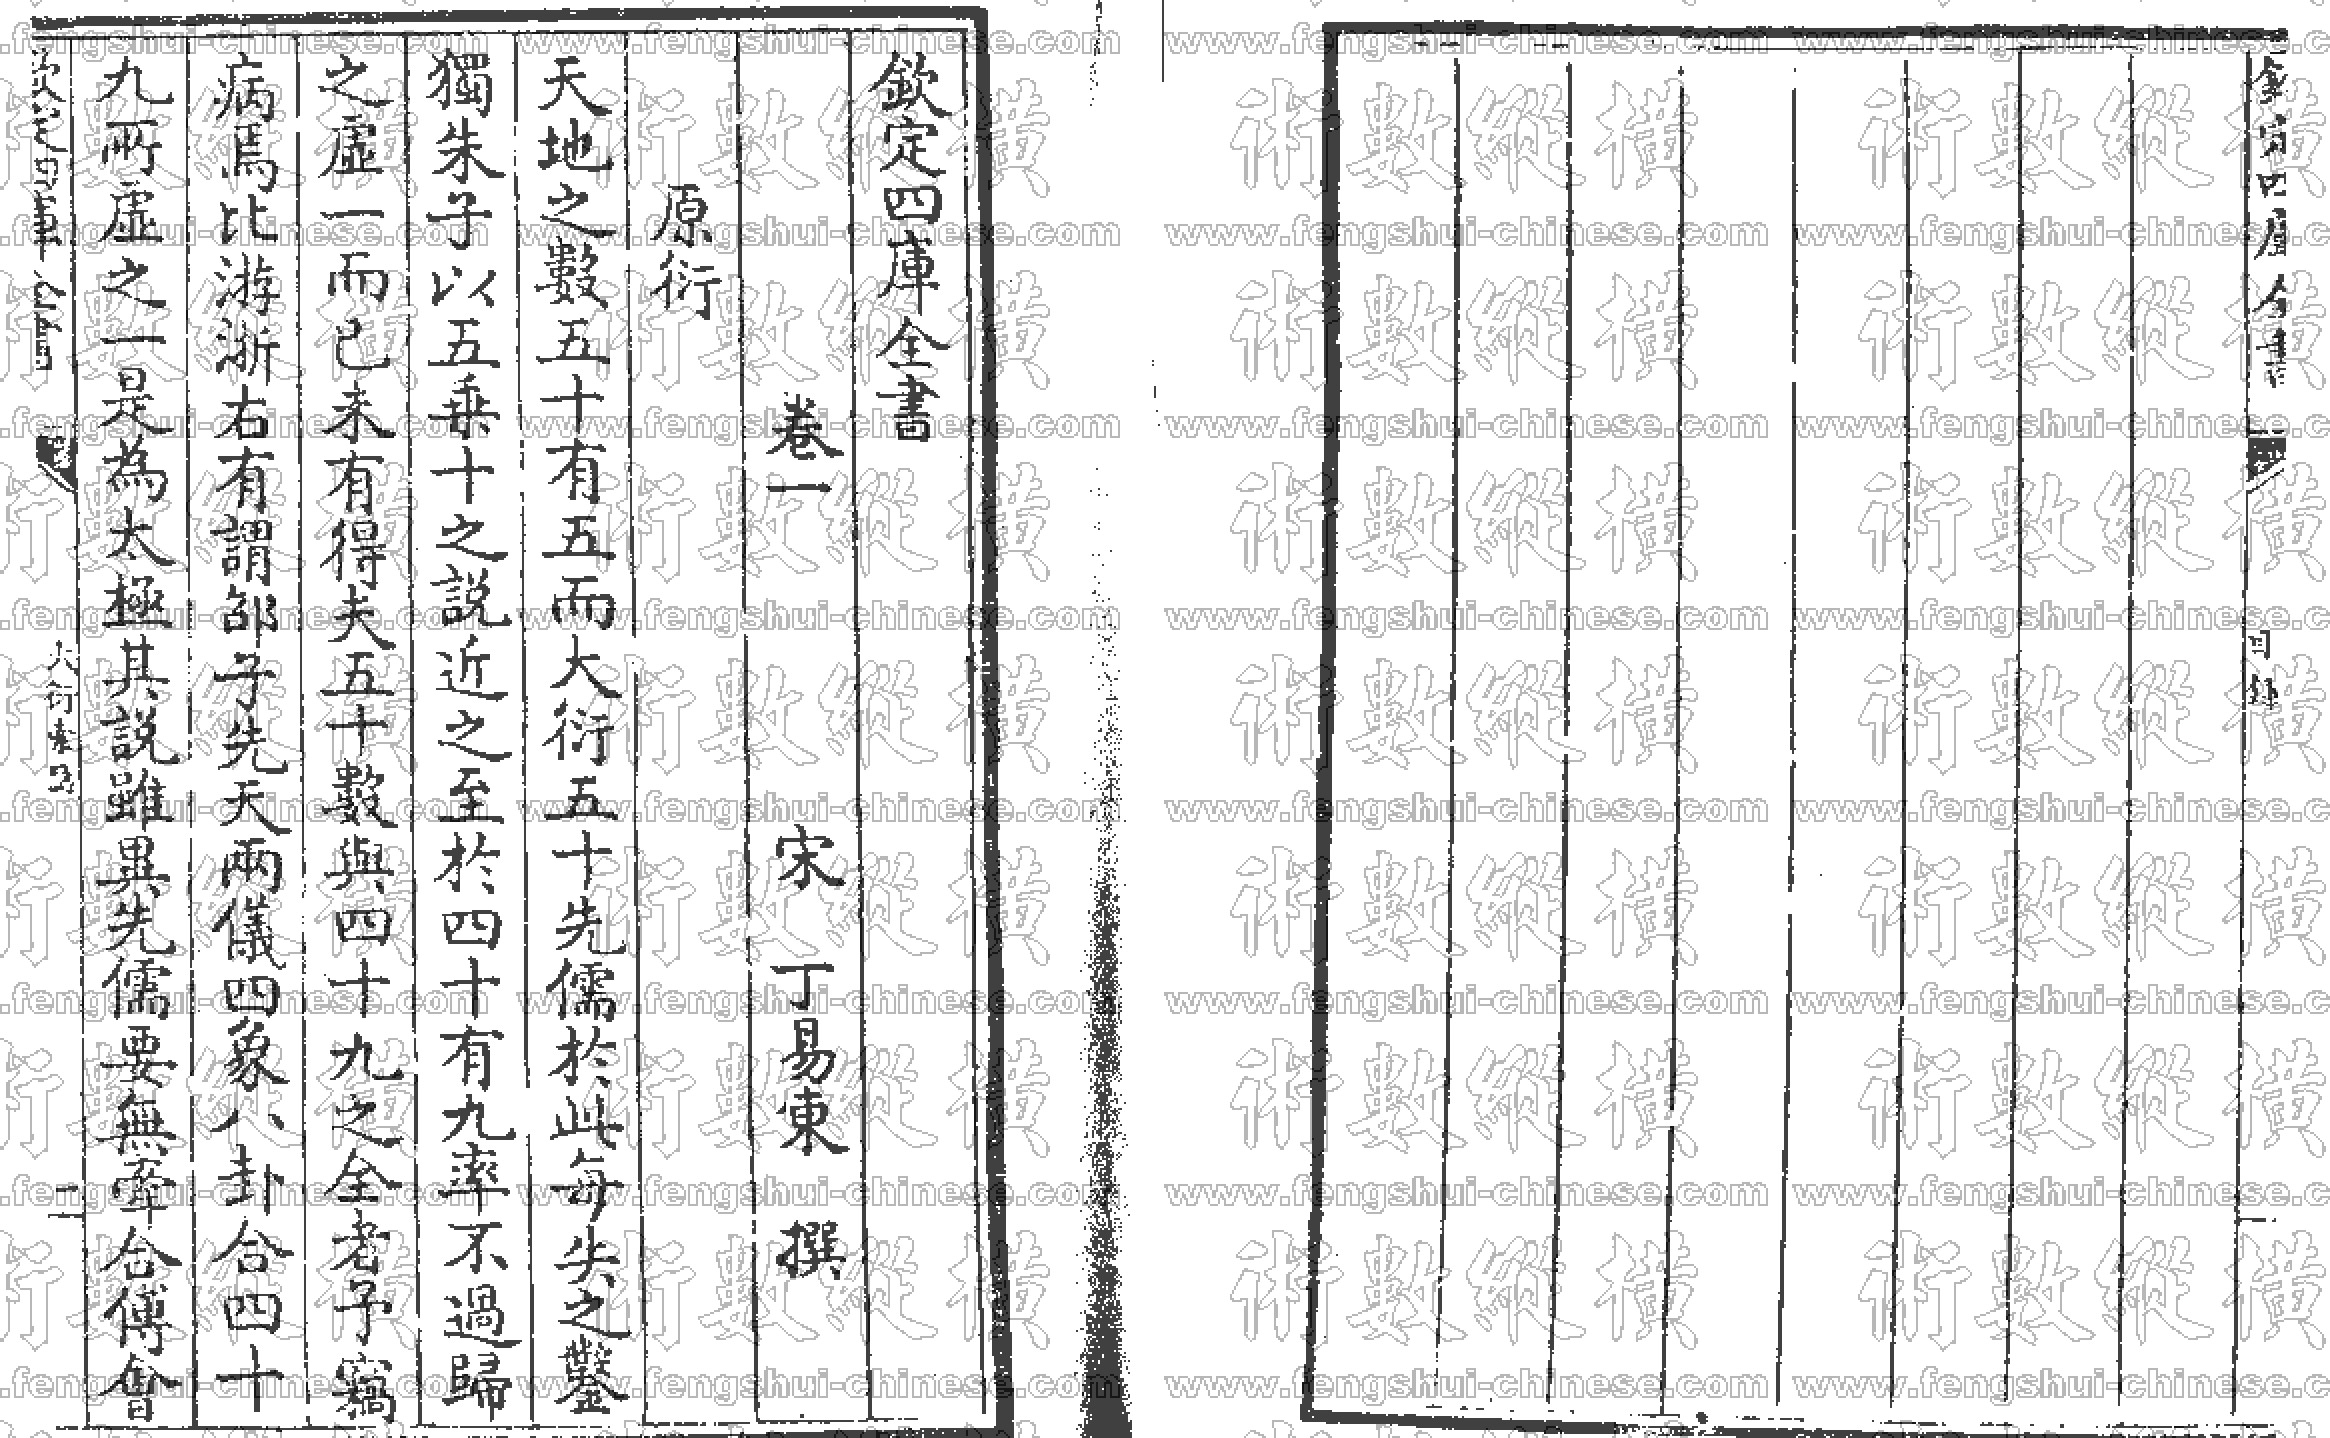 欽定四庫全書
目錄
欽定四庫全書
卷一 宋 丁易東 撰
原衍
天地之數五十有五而大衍五十先儒於此每失之鑿
獨朱子以五乗十之説近之至於四十有九率不過歸
之虛一而已未有得夫五十數與四十九之全者予竊
病焉比游浙右有謂邵子先天兩儀四象八卦合四十
九所虛之一是為太極其説雖異先儒要無牽合傅會
欽定四庫全書
大衍索隠
一
www.fengshui-chinese.com
術數縱橫